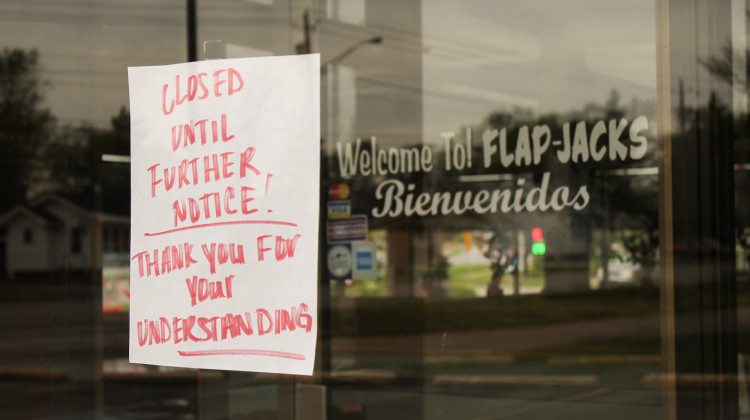 CLOSED
UNTIL
FURTHER
NOTICE!
THANK YOU FOR
YOUR
UNDERSTANDING
Welcome To! FLAP-JACKS
Bienvenidos
VISA